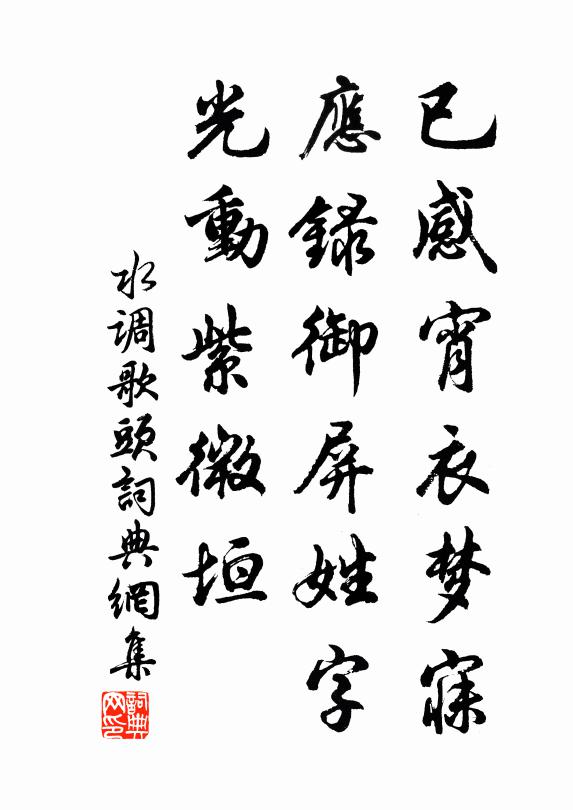 已感宵衣梦寐
應録御屏姓字
光動紫微垣
水调歌頭詞典網集
詞典网印